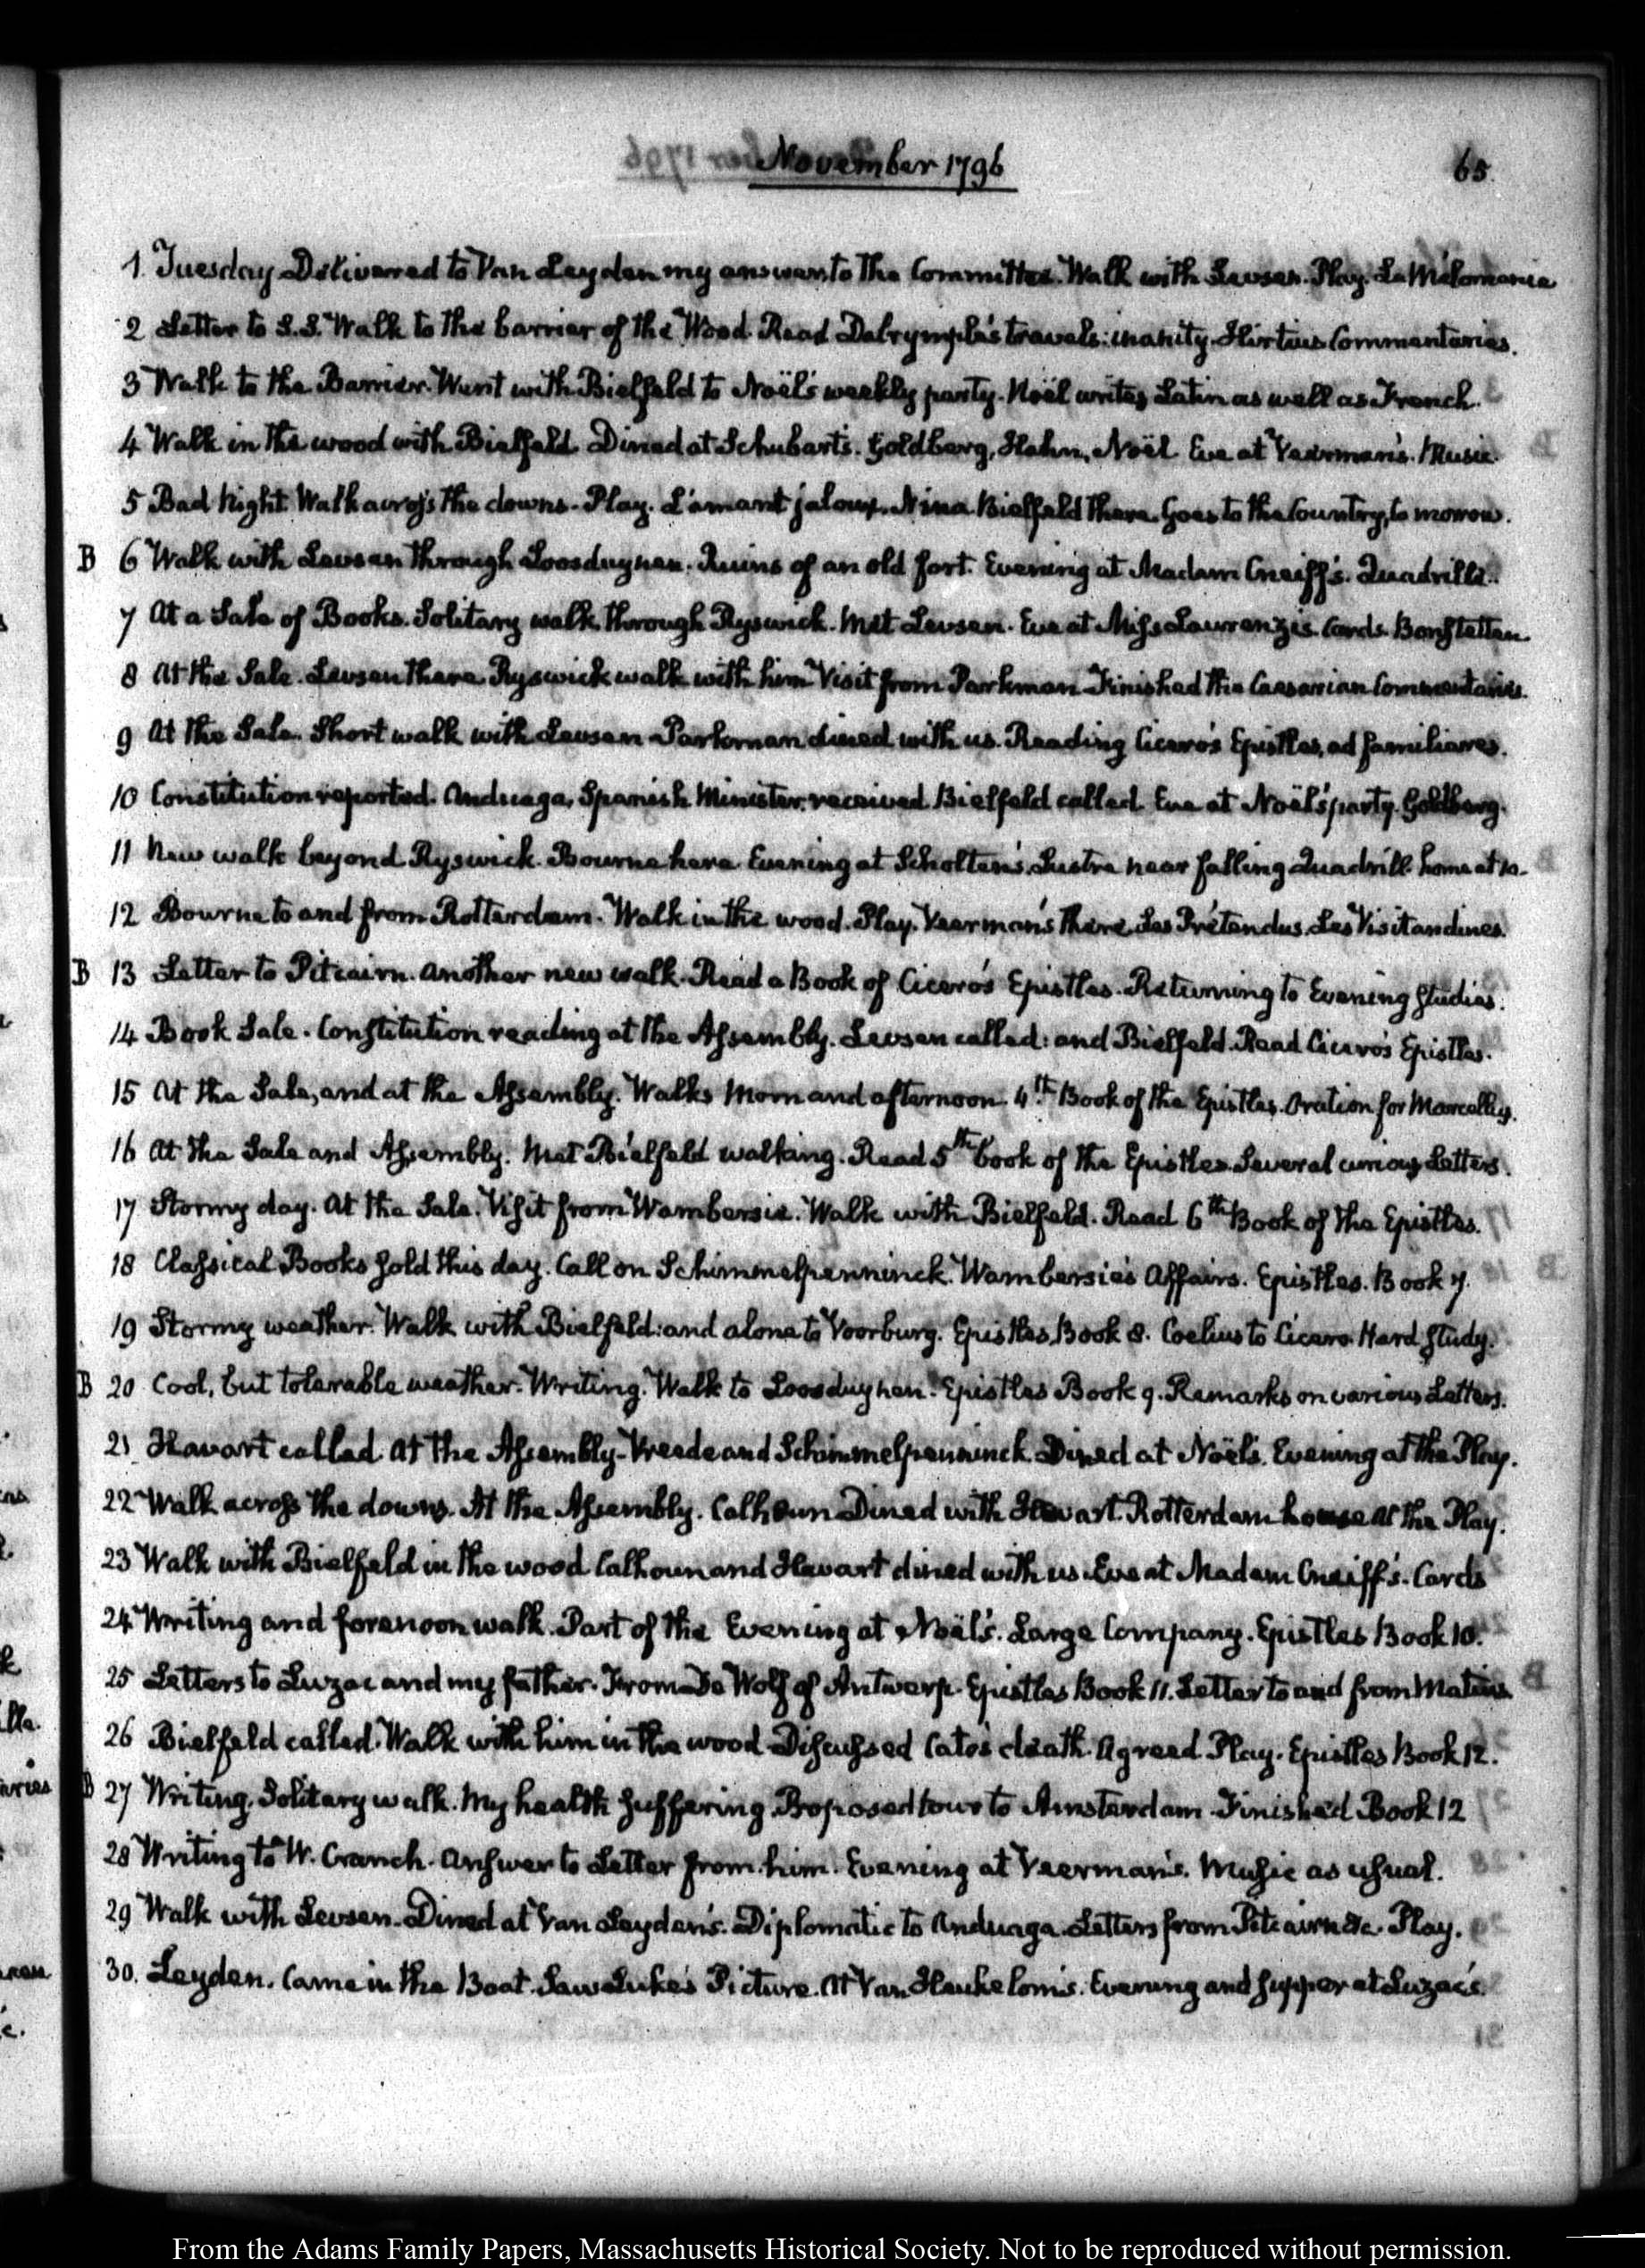 November 1796
65.
1. Tuesday Delivered to Van Leyden my answer to the Committee. Walk with Levsen. Play. La Mélomanie
2 Letter to S.S. Walk to the barrier of the Wood. Read Dalrymple's travels: inanity. Hirtius Commentaries.
3 Walk to the Barrier. Went with Bielfeld to Noël's weekly party. Noël writes Latin as well as French.
4 Walk in the wood with Bielfeld. Dined at Schubart's. Goldberg, Hahn, Noël. Eve at Veerman's. Music.
5 Bad Night. Walk across the downs. Play. L'amant jaloux. Nina. Bielfeld there. Goes to the Country, to morrow.
B 6 Walk with Levsen through Loosduynen. Ruins of an old fort. Evening at Madam Cneiff's. Quadrille.
7 At a Sale of Books. Solitary walk through Ryswick. Met Levsen. Eve at Miss Laurenzi's. Cards. Bonstetten.
8 At the Sale. Levsen there. Ryswick walk with him. Visit from Parkman. Finished the Caesarian Commentaries.
9 At the Sale. Short walk with Levsen. Parkman dined with us. Reading Cicero's Epistles, ad familiares.
10 Constitution reported. Anduaga, Spanish Minister, received. Bielfeld called. Eve at Noël's party. Goldberg.
11 New walk beyond Ryswick. Bourne here. Evening at Scholten's. Lustre near falling. Quadrill. home at 10.
12 Bourne to and from Rotterdam. Walk in the wood. Play. Veerman's there. Les Prétendus. Les Visitandines.
B 13 Letter to Pitcairn. Another new walk. Read a Book of Cicero's Epistles. Returning to Evening studies.
14 Book Sale. Constitution reading at the Assembly. Levsen called: and Bielfeld. Read Cicero's Epistles.
15 At the Sale, and at the Assembly. Walks Morn and afternoon. 4th Book of the Epistles. Oration for Marcellus.
16 At the Sale and Assembly. Met Bielfeld walking. Read 5th book of the Epistles. Several curious Letters.
17 Stormy day. At the Sale. Visit from Wambersie. Walk with Bielfeld. Read 6th Book of the Epistles.
18 Classical Books sold this day. Call on Schimmelpenninck. Wambersie's Affairs. Epistles. Book 7.
19 Stormy weather. Walk with Bielfeld: and alone to Voorburg. Epistles, Book 8. Coelius to Cicero. Hard study.
B 20 Cool, but tolerable weather. Writing. Walk to Loosduynen. Epistles Book 9. Remarks on various Letters.
21 Havart called. At the Assembly. Vreede and Schimmelpenninck. Dined at Noël's. Evening at the Play.
22 Walk across the downs. At the Assembly. Calhoun Dined with Havart. Rotterdam house at the Play.
23 Walk with Bielfeld in the wood. Calhoun and Havart dined with us. Eve at Madam Cneiff's. Cards
24 Writing and forenoon walk. Part of the Evening at Noël's. Large Company. Epistles Book 10.
25 Letters to Luzac and my father. From De Wolf of Antwerp. Epistles Book 11. Letter to and from Matius.
26 Bielfeld called. Walk with him in the wood. Discussed Cato's death. Agreed. Play. Epistles Book 12.
B 27 Writing. Solitary walk. My health suffering. Proposed tour to Amsterdam. Finished Book 12
28 Writing to W. Cranch. Answer to Letter from him. Evening at Veerman's. Music as usual.
29 Walk with Levsen. Dined at Van Leyden's. Diplomatic to Anduaga. Letters from Pitcairn &c. Play.
30. Leyden. Came in the Boat. Saw Luke's Picture. At Van Heukelom's. Evening and supper at Luzac's.
From the Adams Family Papers, Massachusetts Historical Society. Not to be reproduced without permission.